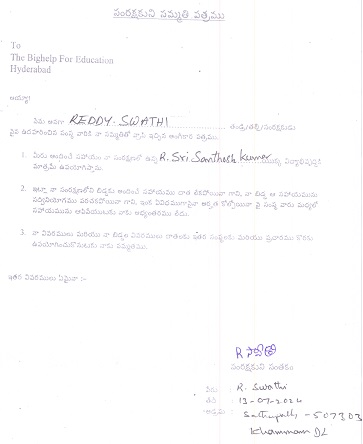 సంరక్షకుని సమ్మతి పత్రము
To
The Bighelp For Education
Hyderabad
అయ్యా!
నేను అనగా REDDY. SWATHI తండ్రి/తల్లి/సంరక్షకుడు
పైన ఉదహరించిన సంస్థ వారికి నా సమ్మతితో వ్రాసి ఇచ్చిన అంగీకార పత్రము.
1. మీరు అందించే సహాయం నా సంరక్షణలో ఉన్న R. Sri Santhosh Kumar యొక్క విద్యాభివృద్ధికి
మాత్రమే ఉపయోగిస్తాను.
2. ఇట్లా నా సంరక్షణలోని బిడ్డకు అందించే సహాయము దాత లేకపోయినా గానీ, నా బిడ్డ ఆ సహాయమును
సద్వినియోగము పరచకపోయినా గానీ, ఇంక ఏవిధముగానైనా అర్హత కోల్పోయినా పై సంస్థ వారు మధ్యలో
సహాయమును ఆపివేయుటకు నాకు అభ్యంతరము లేదు.
3. నా వివరములు మరియు నా బిడ్డల వివరములు దాతలకు ఇతర సంస్థలకు మరియు ప్రచారము కొరకు
ఉపయోగించుకొనుటకు నాకు సమ్మతము.
ఇతర వివరములు ఏమైనా :-
R స్వాతి
సంరక్షకుని సంతకం
పేరు : R. Swathi
తేది : 13-07-2024
అడ్రసు : Sathupally - 507303
Khammam Dt